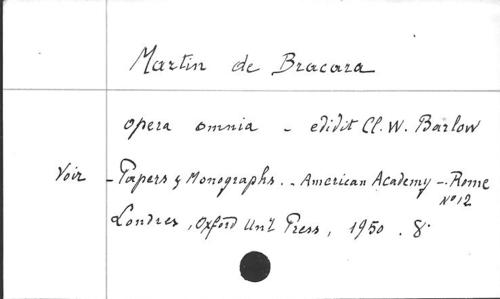 Martin de Bracara
opera omnia - edidit Cl. W. Barlow
Voir - Papers & Monographs. - American Academy - Rome
Nº 12
Londres, Oxford Uni! Press, 1950. 8.